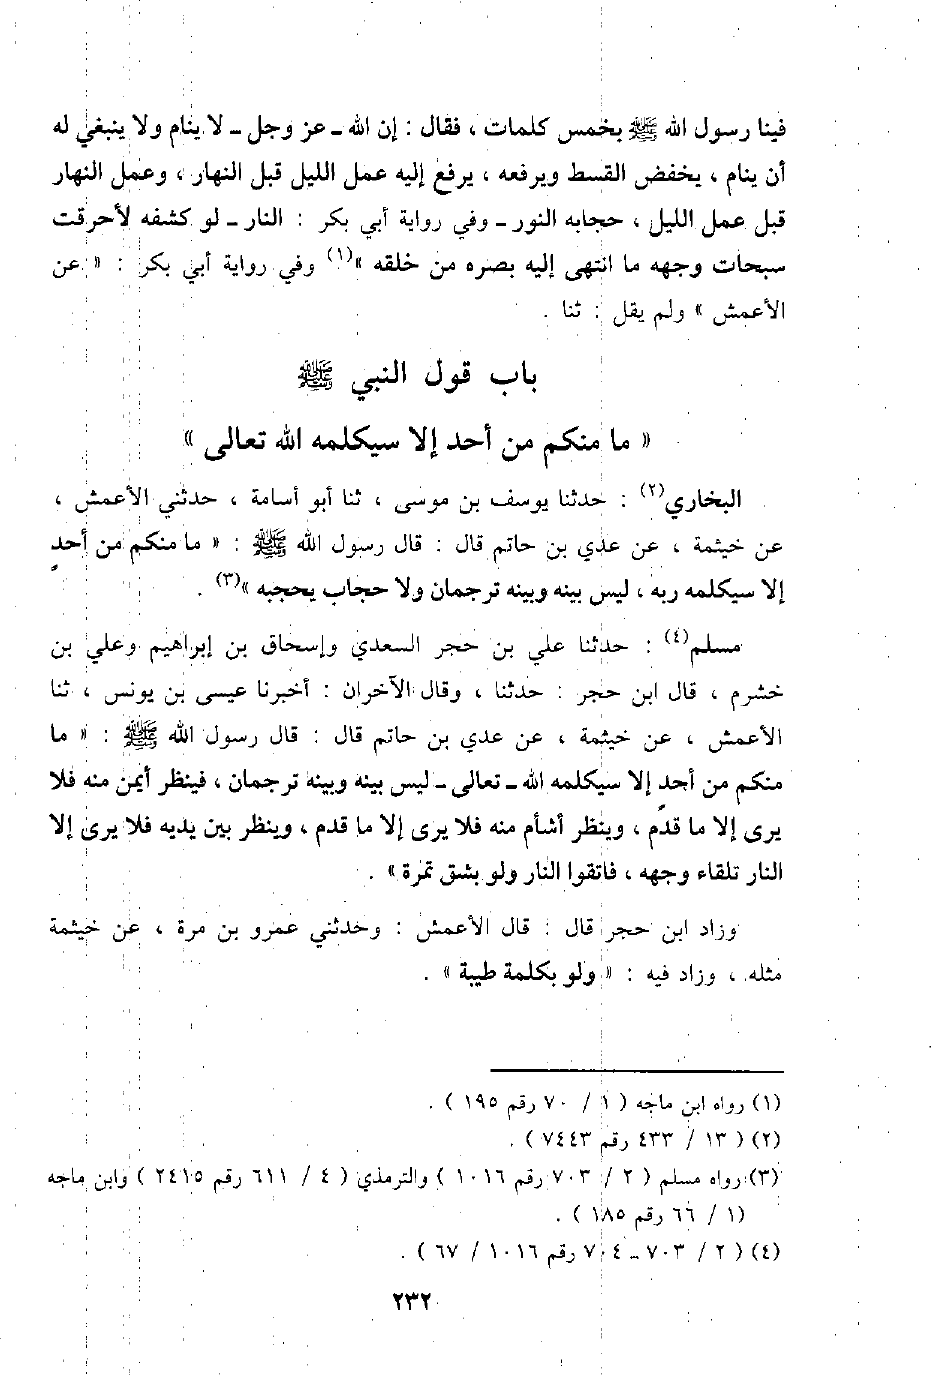 فينا رسول الله ﷺ بخمس كلمات ، فقال : إن الله ـ عز وجل ـ لا ينام ولا ينبغي له
أن ينام ، يخفض القسط ويرفعه ، يرفع إليه عمل الليل قبل النهار ، وعمل النهار
قبل عمل الليل ، حجابه النور ـ وفي رواية أبي بكر : النار ـ لو كشفه لأحرقت
سبحات وجهه ما انتهى إليه بصره من خلقه »(١) وفي رواية أبي بكر : « عن
الأعمش » ولم يقل : ثنا .
باب قول النبي ﷺ
« ما منكم من أحد إلا سيكلمه الله تعالى »
البخاري(٢) : حدثنا يوسف بن موسى ، ثنا أبو أسامة ، حدثني الأعمش ،
عن خيثمة ، عن عدي بن حاتم قال : قال رسول الله ﷺ : « ما منكم من أحدٍ
إلا سيكلمه ربه ، ليس بينه وبينه ترجمان ولا حجاب يحجبه »(٣) .
مسلم(٤) : حدثنا علي بن حجر السعدي وإسحاق بن إبراهيم وعلي بن
خشرم ، قال ابن حجر : حدثنا ، وقال الآخران : أخبرنا عيسى بن يونس ، ثنا
الأعمش ، عن خيثمة ، عن عدي بن حاتم قال : قال رسول الله ﷺ : « ما
منكم من أحدٍ إلا سيكلمه الله ـ تعالى ـ ليس بينه وبينه ترجمان ، فينظر أيمن منه فلا
يرى إلا ما قدم ، وينظر أشأم منه فلا يرى إلا ما قدم ، وينظر بين يديه فلا يرى إلا
النار تلقاء وجهه ، فاتقوا النار ولو بشق تمرة » .
وزاد ابن حجر قال : قال الأعمش : وحدثني عمرو بن مرة ، عن خيثمة
مثله ، وزاد فيه : « ولو بكلمة طيبة » .
(١) رواه ابن ماجه ( ١ / ٧٠ رقم ١٩٥ ) .
(٢) ( ١٣ / ٤٣٣ رقم ٧٤٤٣ ) .
(٣) رواه مسلم ( ٢ / ٧٠٣ رقم ١٠١٦ ) والترمذي ( ٤ / ٦١١ رقم ٢٤١٥ ) وابن ماجه
(١ / ٦٦ رقم ١٨٥ ) .
(٤) ( ٢ / ٧٠٣ ـ ٧٠٤ رقم ١٠١٦ / ٦٧ ) .
٢٣٢